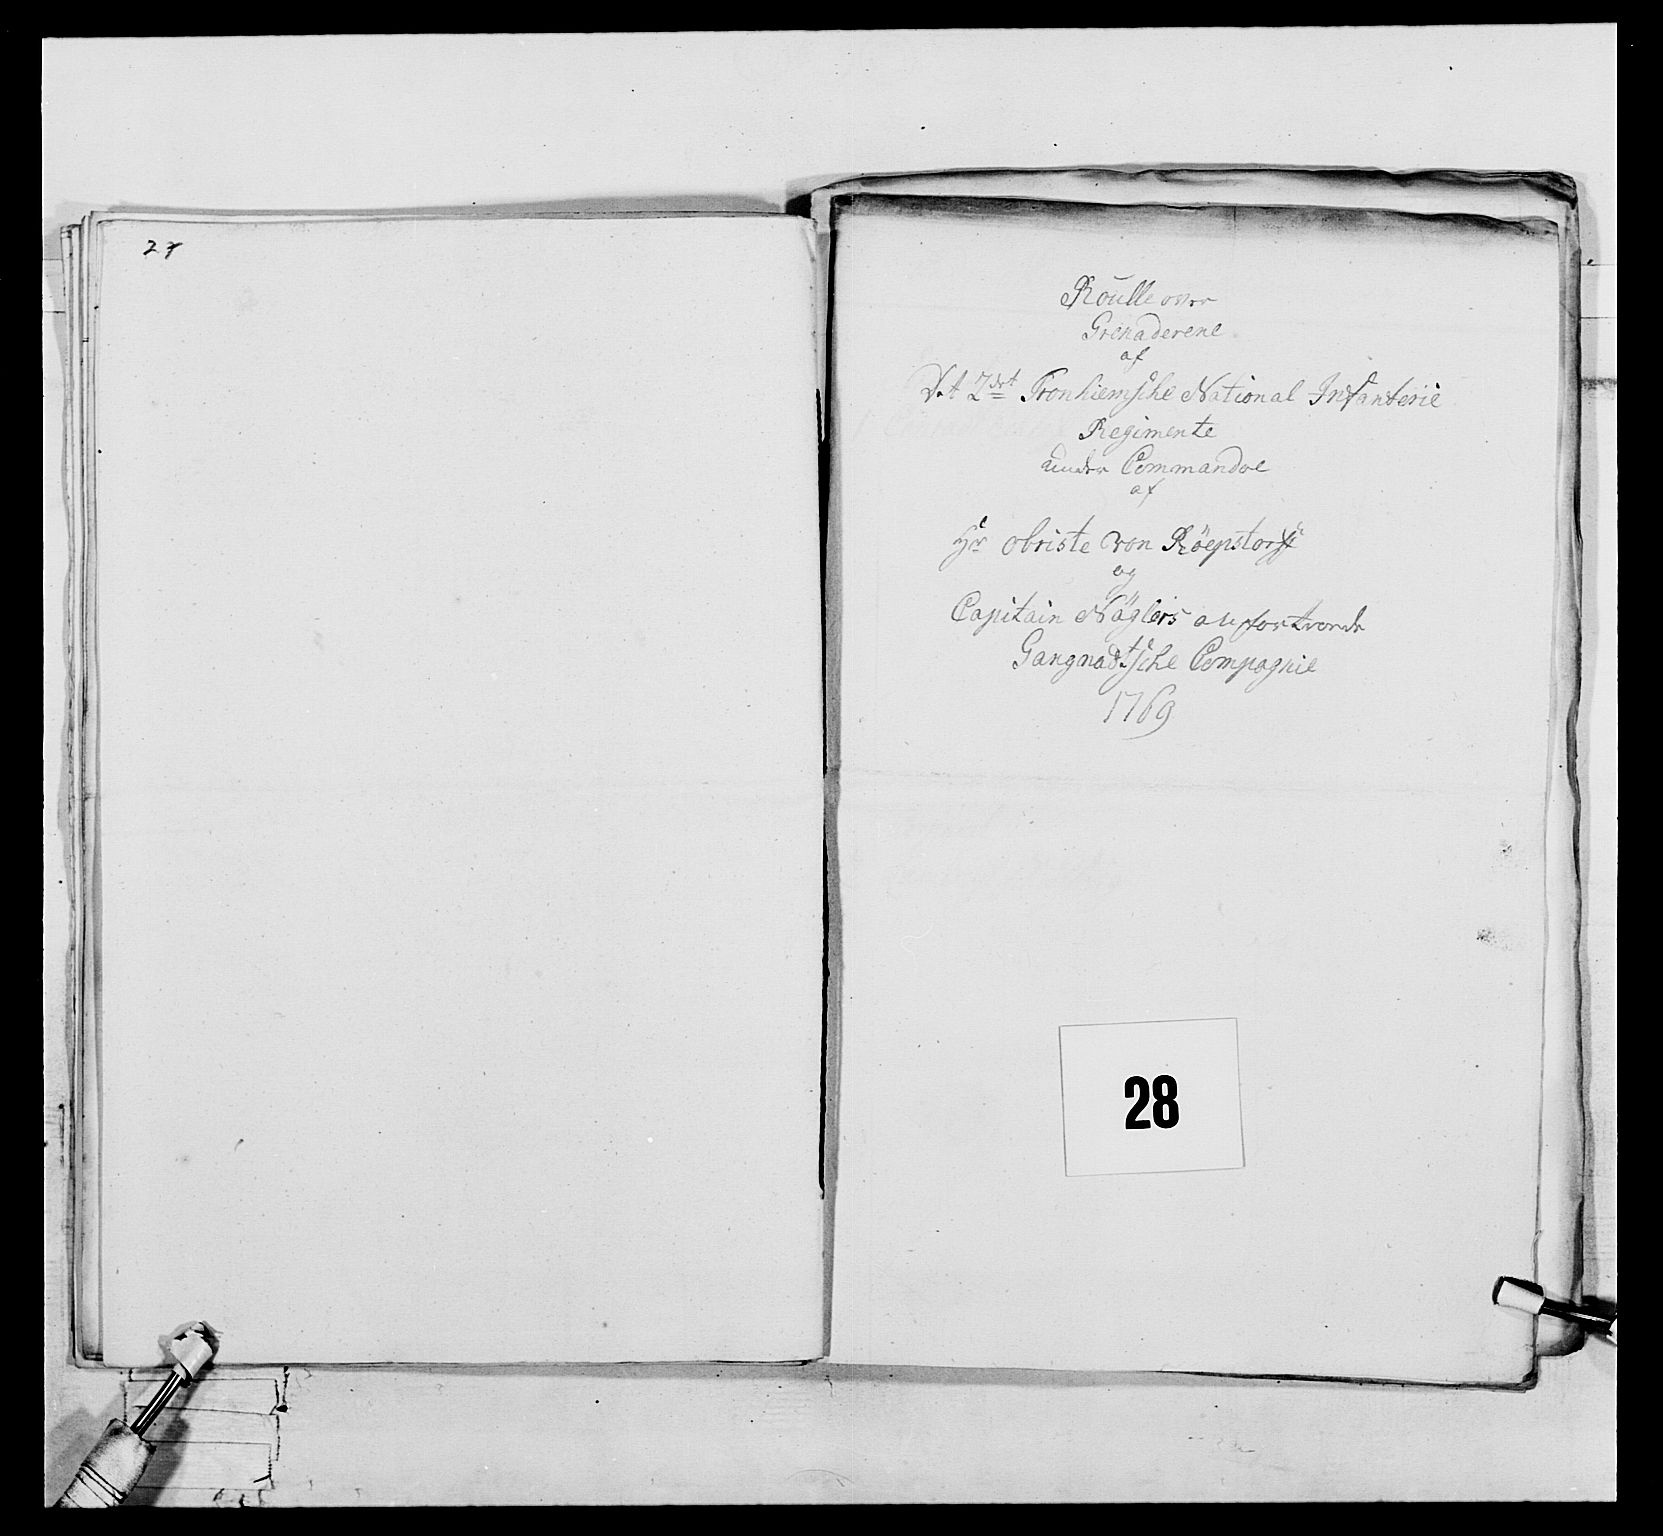 27
Roulle over
Grenaderene
af
Det 2det Tronhiemsche National Infanterie
Regimente
under Commandoe
af
Hr Obriste von Röepstorff
og
Capitain Näglers anfortroede
Gangnadtsche Compagnie
1769
28